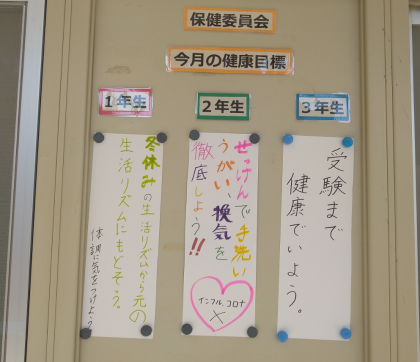 保健委員会
今月の健康目標
1年生
冬休みの生活リズムから元の
生活リズムにもどそう。
体調に気をつけよう。
2年生
せっけんで手洗い
うがい、換気を
徹底しよう!!
インフル、コロナ
×
3年生
受験まで
健康でいよう。